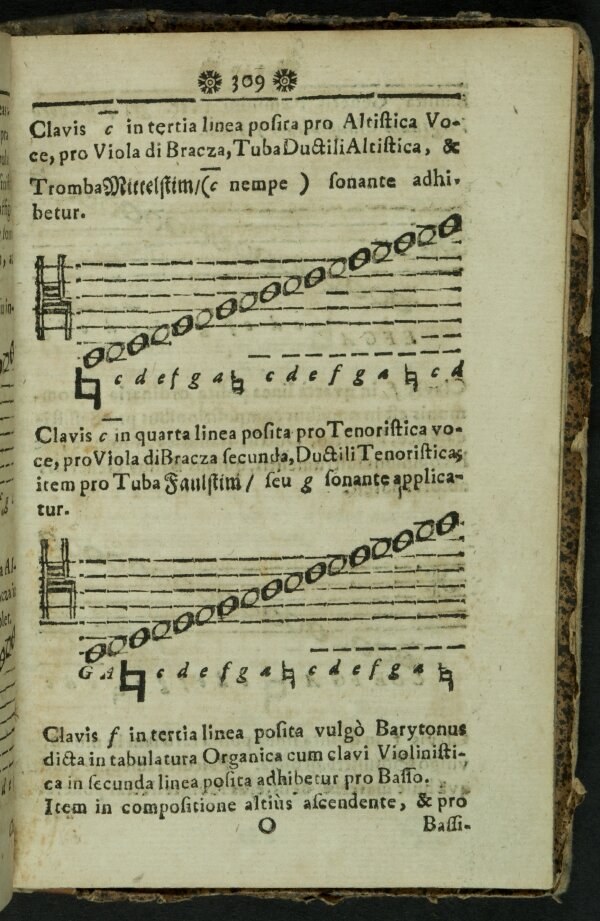 309
Clavis c̅ in tertia linea posita pro Altistica Vo-
ce, pro Viola di Bracza, Tuba Ductili Altistica, &
Tromba Mittelstim/ (c̅ nempe ) sonante adhi-
betur.
♮ c d e f g a ♮ c d e f g a ♮ c d
Clavis c̅ in quarta linea posita pro Tenoristica vo-
ce, pro Viola di Bracza secunda, Ductili Tenoristica;
item pro Tuba Faulstim/ seu g sonante applica-
tur.
G A ♮ c d e f g a ♮ c d e f g a ♮
Clavis f in tertia linea posita vulgò Barytonus
dicta in tabulatura Organica cum clavi Violinisti-
ca in secunda linea posita adhibetur pro Basso.
Item in compositione altiùs ascendente, & pro
O Bassi-